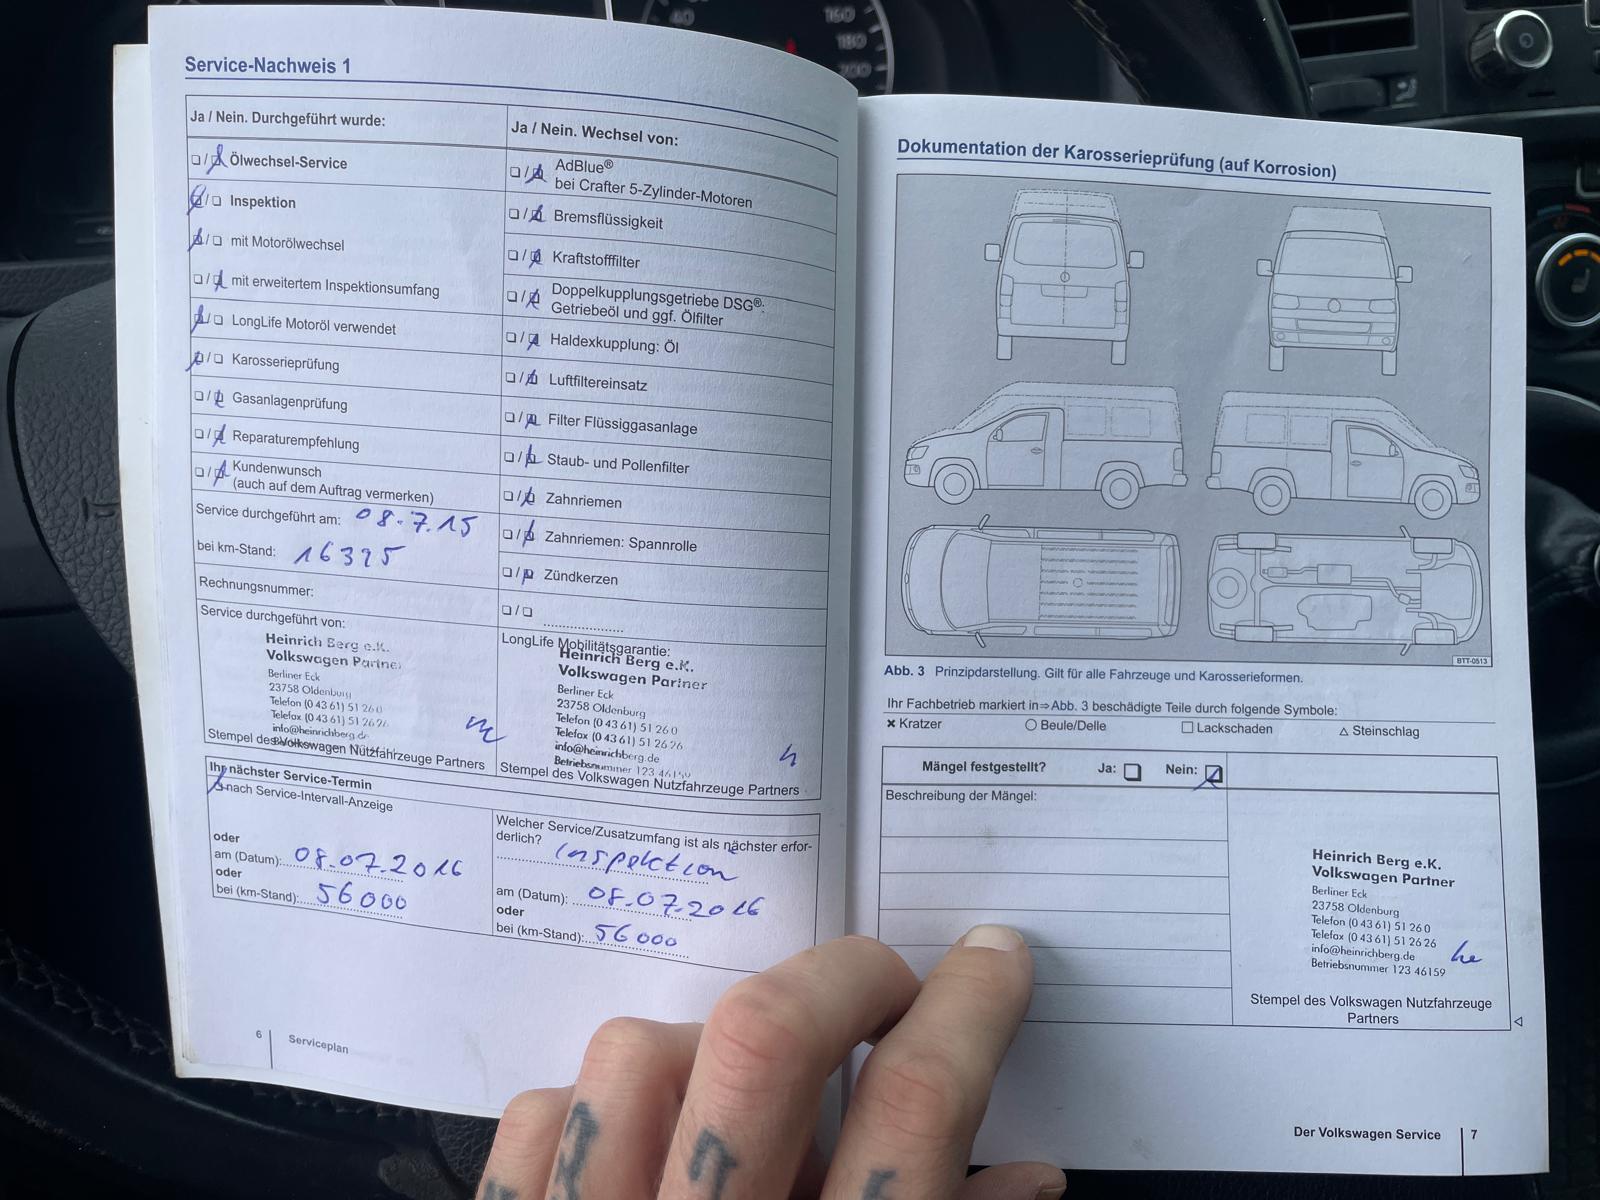 Service-Nachweis 1
Ja / Nein. Durchgeführt wurde:
❏ / ❏ Ölwechsel-Service
❏ / ❏ Inspektion
❏ / ❏ mit Motorölwechsel
❏ / ❏ mit erweitertem Inspektionsumfang
❏ / ❏ LongLife Motoröl verwendet
❏ / ❏ Karosserieprüfung
❏ / ❏ Gasanlagenprüfung
❏ / ❏ Reparaturempfehlung
❏ / ❏ Kundenwunsch
(auch auf dem Auftrag vermerken)
Service durchgeführt am: 08.7.15
bei km-Stand: 16325
Rechnungsnummer:
Service durchgeführt von:
Heinrich Berg e.K.
Volkswagen Partner
Berliner Eck
23758 Oldenburg
Telefon (0 43 61) 51 26 0
Telefax (0 43 61) 51 26 26
info@heinrichberg.de
Stempel des Volkswagen Nutzfahrzeuge Partners
Ja / Nein. Wechsel von:
❏ / ❏ AdBlue®
bei Crafter 5-Zylinder-Motoren
❏ / ❏ Bremsflüssigkeit
❏ / ❏ Kraftstofffilter
❏ / ❏ Doppelkupplungsgetriebe DSG®:
Getriebeöl und ggf. Ölfilter
❏ / ❏ Haldexkupplung: Öl
❏ / ❏ Luftfiltereinsatz
❏ / ❏ Filter Flüssiggasanlage
❏ / ❏ Staub- und Pollenfilter
❏ / ❏ Zahnriemen
❏ / ❏ Zahnriemen: Spannrolle
❏ / ❏ Zündkerzen
❏ / ❏ ....................
LongLife Mobilitätsgarantie:
Heinrich Berg e.K.
Volkswagen Partner
Berliner Eck
23758 Oldenburg
Telefon (0 43 61) 51 26 0
Telefax (0 43 61) 51 26 26
info@heinrichberg.de
Betriebsnummer 123 46159
Stempel des Volkswagen Nutzfahrzeuge Partners
Ihr nächster Service-Termin
❏ nach Service-Intervall-Anzeige
oder
am (Datum): 08.07.2016
oder
bei (km-Stand): 56000
Welcher Service/Zusatzumfang ist als nächster erfor-
derlich?
Inspektion
am (Datum): 08.07.2016
oder
bei (km-Stand): 56000
6
Serviceplan
Dokumentation der Karosserieprüfung (auf Korrosion)
BTT-0513
Abb. 3 Prinzipdarstellung. Gilt für alle Fahrzeuge und Karosserieformen.
Ihr Fachbetrieb markiert in ⇒ Abb. 3 beschädigte Teile durch folgende Symbole:
✖ Kratzer ◯ Beule/Delle ☐ Lackschaden △ Steinschlag
Mängel festgestellt? Ja: ❏ Nein: ❏
Beschreibung der Mängel:
Heinrich Berg e.K.
Volkswagen Partner
Berliner Eck
23758 Oldenburg
Telefon (0 43 61) 51 26 0
Telefax (0 43 61) 51 26 26
info@heinrichberg.de
Betriebsnummer 123 46159
Stempel des Volkswagen Nutzfahrzeuge
Partners
Der Volkswagen Service
7
160
180
200